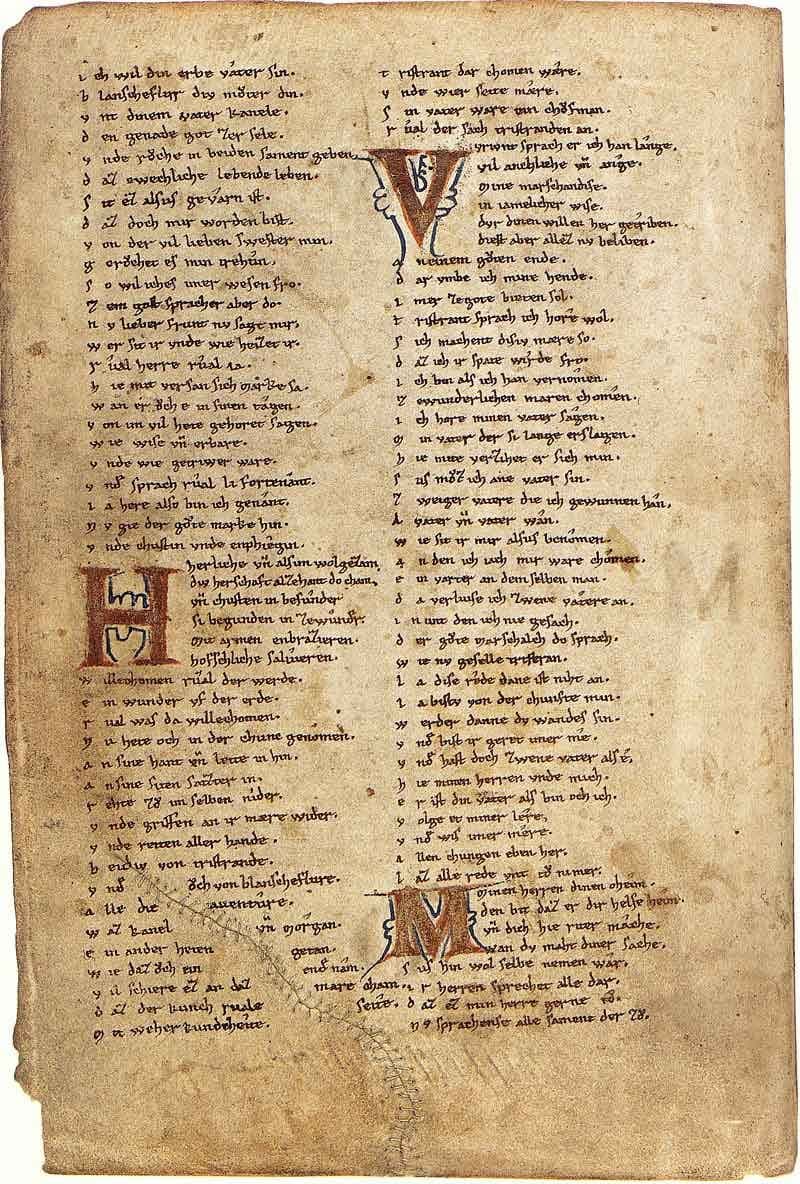 i ch wil din erbe vater sin.
b lanscheflvr div mvͦter din.
v nt dinem vater kanele.
d en genade got zer sele.
v nde rvͦche in beiden sament geben
d az ewechliche lebende leben.
s it ez alsus gevarn ist.
d az doch mir worden bist.
v on der vil lieben swester min.
g
s o wil ich es imer wesen fro.
sprach er aber do.
n v lieber frunt nv sagt mir.
w er sit ir vnde wie heizet ir.
r ual herre rual ia.
h ie mit versan sich marke sa.
w an er ovch e in sinen tagen.
v on im vil hete gehoret sagen.
w ie wise vn̄ erbare.
v nde wie getriwer ware.
v nd sprach rual li fortenant.
i a here also bin ich genant.
n v gie der gvͦte marke hin.
v nde chustin vnde enphiegin.
H herliche vn̄ alsim wol gezam.
div herschaft alzehant do cham.
vn̄ chusten in besunder
si begunden in ze wunder.
Mit armen enbrazieren.
hofschliche salvieren.
w illechomen rual der werde.
e in wunder vf der erde.
r ual was da willechomen.
in hete och in der chunc genomen.
a n sine hant vn̄ leite in hin.
a n sine siten sazter in.
r ehte zv im selben nider.
v nde griffen an ir mære wider.
v nde reiten aller hande.
b eidiv von tristrande.
v nd ovch von blanscheflure.
a lle die aventure.
w az kanel vn̄ morgan.
e in ander heten getan.
w ie daz och ein ende nam.
v il schiere ez an daz mare cham.
d az der kunch ruale seite.
m it welher kundeheite.
t ristrant dar chomen wære.
v nde wier seite mære.
s in vater ware ein chofman.
r ual der sach tristranden an.
V vriunt sprach er ich han lange.
vil anchliche vn̄ ange.
mine marschandise.
in iamelicher wise.
dvr dinen willen her getriben.
diest aber allez nv beliben.
a n einem gvͦten ende.
d ar vmbe ich mine hende.
i mer ze gote bieten sol.
t ristrant sprach ich hore wol.
s ich machent disiv mære so.
d az ich ir spate wirde fro.
i ch bin als ich han vernomen.
z e wunderlichen maren chomen.
i ch hore minen vater sagen.
m in vater der si lange erslagen.
h ie mite verziher er sich min.
s us mvͦz ich ane vater sin.
z weiger vatere die ich gewunnen han.
a vater vn̄ vater wan.
w ie sit ir mir alsus benomen.
a n den ich iach mir ware chomen.
e in vater an dem selben man.
d a verliuse ich zwene vatere an.
i n vnt den ich nie gesach.
d er gvͦte marschalch do sprach.
w ie nv geselle tristran.
l a dise rede dane ist niht an.
i a bistv von der chunfte min.
w erder danne dv wandes sin.
v nd bist ir geret imer me.
v nd hast doch zwene vater als e.
h ie minen herren vnde mich.
e r ist din vater als bin och ich.
v olge et miner lere.
v nd wis imer mere.
a llen chungen eben her.
l az alle rede vnt tv nimer.
M minen herren dinen oheim.
den bit daz er dir helfe heim.
vn̄ dich hie riter mache.
wan dv maht diner sache.
s us hin wol selbe nemen war.
i r herren sprechet alle dar.
d az ez min herre gerne tv.
nv sprachense alle sament der zv.